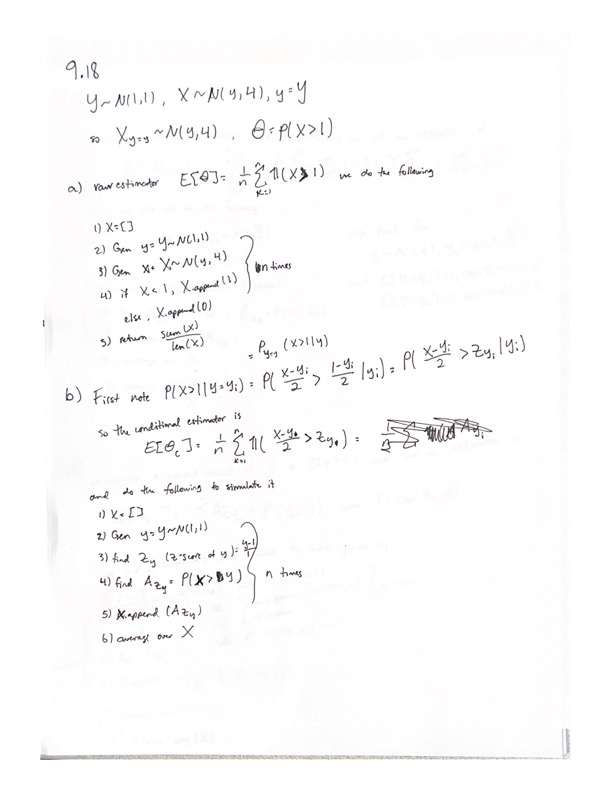 9.18
Y~N(1,1), X~N(y,4), y=Y
so X_{Y=y}~N(y,4), θ=P(X>1)
a) raw estimator E[θ]= 1/n Σ_{k=1}^{n} 𝟙(X>1) we do the following
1) X=[]
2) Gen y=Y~N(1,1)
3) Gen X~N(y,4)
4) if X<1, X.append(1)
else, X.append(0)
n times
5) return sum(X)/len(X)
= P_{Y=y}(X>1|y)
b) First note P(X>1|y=y_i) = P( (X-y_i)/2 > (1-y_i)/2 |y_i) = P( (X-y_i)/2 > Z_{y_i} |y_i)
so the conditional estimator is
E[θ_c]= 1/n Σ_{k=1}^{n} 𝟙( (X-y)/2 > Z_y ) =
and do the following to simulate it
1) X=[]
2) Gen y=Y~N(1,1)
3) find Z_y (Z-score of y)= (y-1)/1
4) find A_{Z_y} = P(X> y)
n times
5) X.append(A_{Z_y})
6) average over X